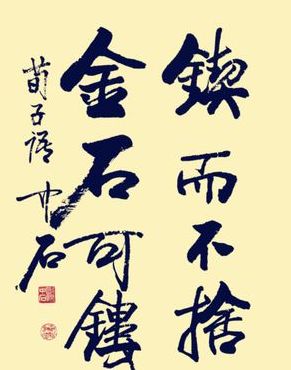 鍥而不捨
金石可鏤
荀子語
中石